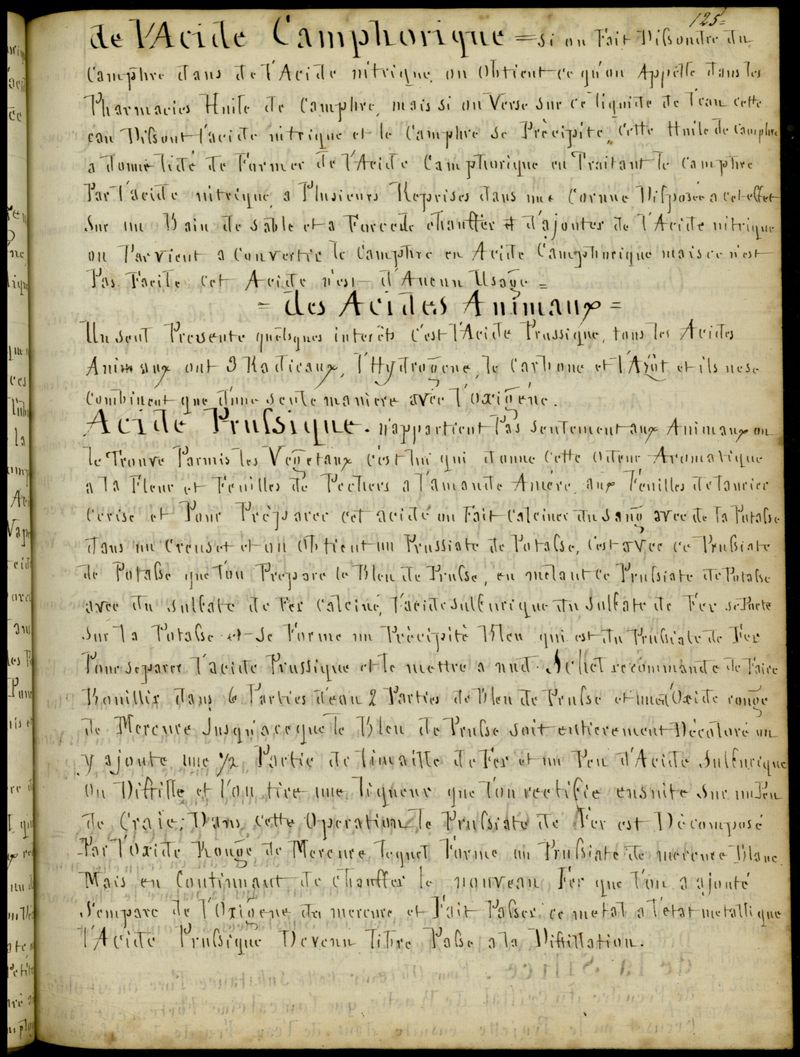 125=
de l'Acide Camphorique = Si on Fait Dissoudre du
Camphre dans de l'Acide nitrique, on Obtient ce qu'on Appelle dans les
Pharmacies Huile de Camphre, mais si on Verse Sur ce liquide de l'eau, cette
eau Dissout l'acide nitrique et le Camphre se Précipite, Cette Huile de Camphre
a donné lidé de Former de l'Acide Camphorique en Traitant le Camphre
Par l'acide nitrique, a Plusieurs Reprises dans une Cornue Disposée a cet effet
Sur un Bain de Sable et a Force de chauffer & d'ajouter de l'Acide nitrique
on Parvient a Convertir le Camphre en Acide Camphorique mais ce n'est
Pas Facile Cet Acide n'est d'Aucun Usage =
= des Acides Animaux =
Un Seul Presente quelques interêts c'est l'Acide Prussique, tous les Acides
Animaux ont 3 Radicaux, l'Hydrogene, le Carbone et l'Azot et ils ne se
Combinent que d'une Seule maniere avec l'Oxigene.
Acide Prussique. n'appartient Pas Seulement aux Animaux on
le Trouve Parmis les Vegetaux c'est lui qui donne Cette Odeur Aromatique
a la Fleur et Feuilles de Pechers a l'amande Amère, aux Feuilles de laurier
Cerise et Pour Préparer cet acide on Fait Calciner du Sang avec de la Potasse
dans un Creuset et on Obtient un Prussiate de Potasse, C'est avec ce Prussiate
de Potasse que l'on Prepare le Bleu de Prusse, en mêlant ce Prussiate de Potasse
avec du Sulfate de Fer Calciné, l'acide Sulfurique du Sulfate de Fer se Porte
Sur la Potasse et Se Forme un Précipité Bleu qui est du Prussiate de Fer
Pour Separer l'acide Prussique et le mettre a nud. Schel recommande de Faire
Bouillir dans 6 Parties d'eau 2 Parties de Bleu de Prusse et une d'Oxide rouge
de Mercure Jusqu'a ce que le Bleu de Prusse Soit entierement Décoloré on
y ajoute une 1/2 Partie de limaille de Fer et un Peu d'Acide Sulfurique
On Distille et l'on tire une liqueur que l'on rectifie ensuite Sur un Peu
de Craie, Dans cette Operation le Prussiate de Fer est Décomposé
Par l'Oxide Rouge de Mercure lequel Forme un Prussiate de mercure Blanc
Mais en Continuant de Chauffer le nouveau Fer que l'on a ajouté
S'empare de l'Oxigene du mercure et Fait Passer ce metal a l'etat metallique
l'Acide Prussique Devenu libre Passe a la Distillation.